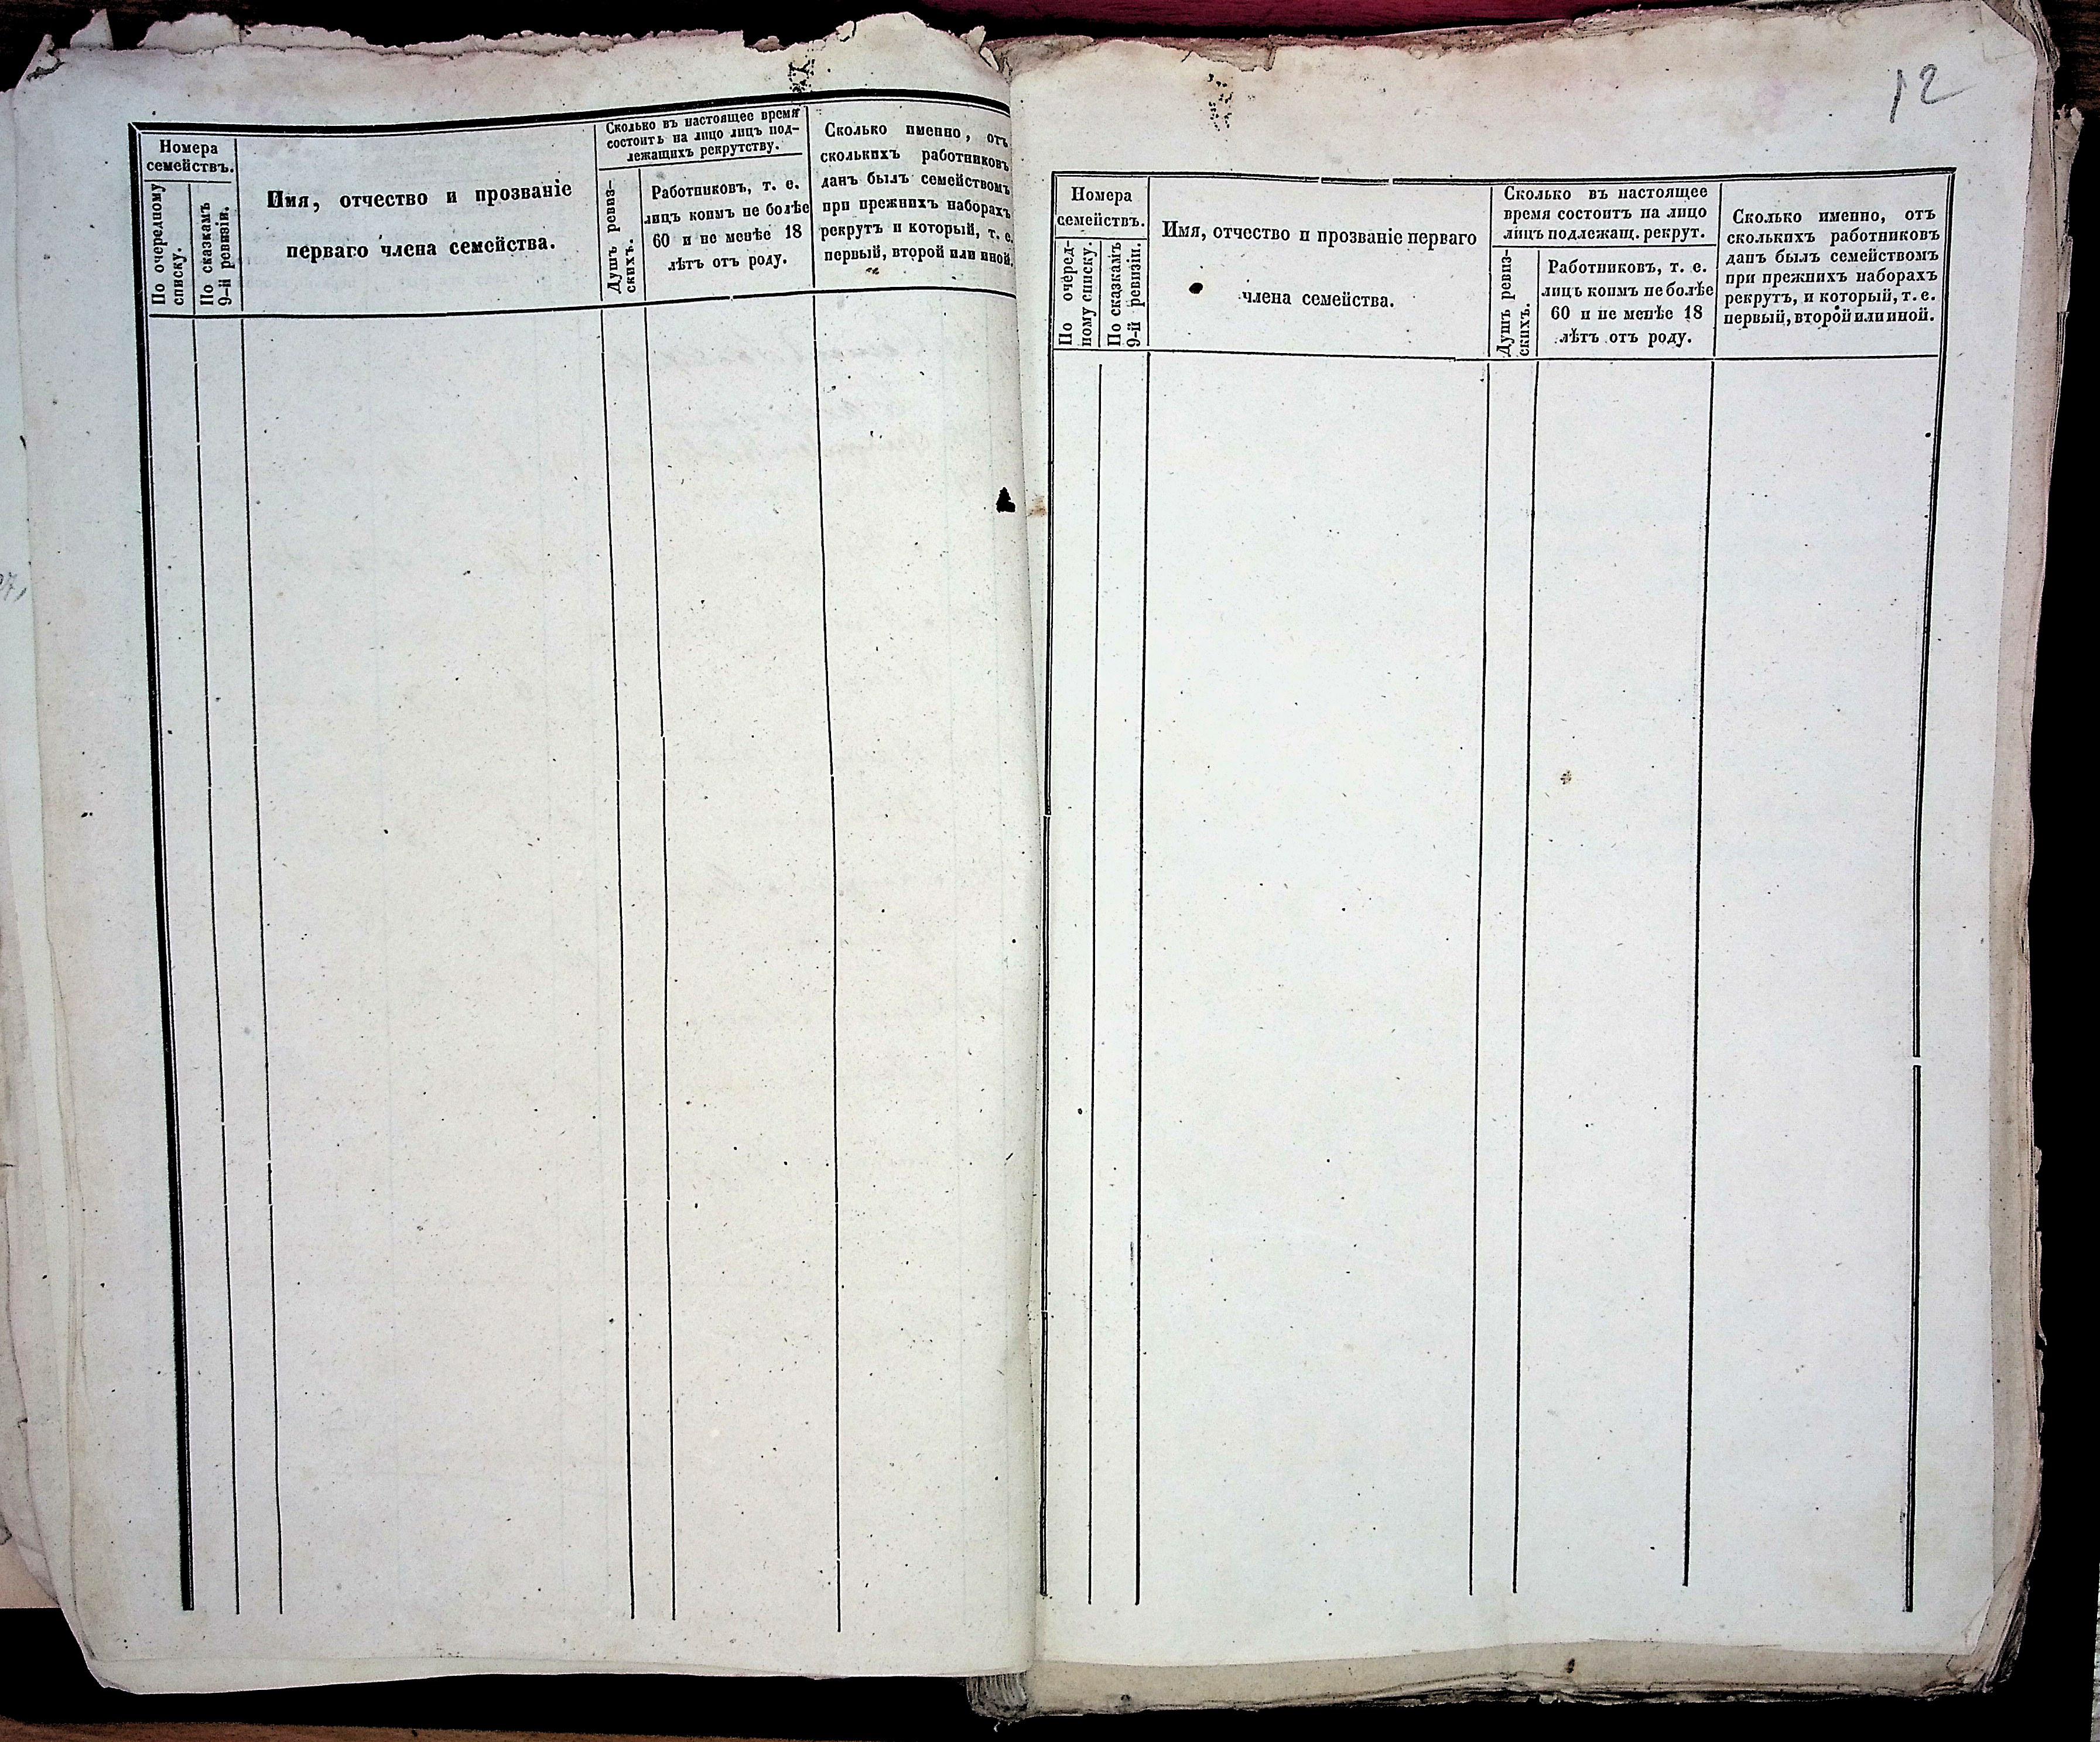 Номера
семействъ.
По очередному
списку.
По сказкамъ
9-й ревизіи.
Имя, отчество и прозваніе
перваго члена семейства.
Сколько въ настоящее время
состоитъ на лицо лицъ под-
лежащихъ рекрутству.
Душъ ревиз-
скихъ.
Работниковъ, т. е.
лицъ коимъ не болѣе
60 и не менѣе 18
лѣтъ отъ роду.
Сколько именно, отъ
сколькихъ работниковъ
данъ былъ семействомъ
при прежнихъ наборахъ
рекрутъ и который, т. е.
первый, второй или иной.
12
Номера
семействъ.
По очеред-
ному списку.
По сказкамъ
9-й ревизіи.
Имя, отчество и прозваніе перваго
члена семейства.
Сколько въ настоящее
время состоитъ на лицо
лицъ подлежащ. рекрут.
Душъ ревиз-
скихъ.
Работниковъ, т. е.
лицъ коимъ не болѣе
60 и не менѣе 18
лѣтъ отъ роду.
Сколько именно, отъ
сколькихъ работниковъ
данъ былъ семействомъ
при прежнихъ наборахъ
рекрутъ, и который, т. е.
первый, второй или иной.